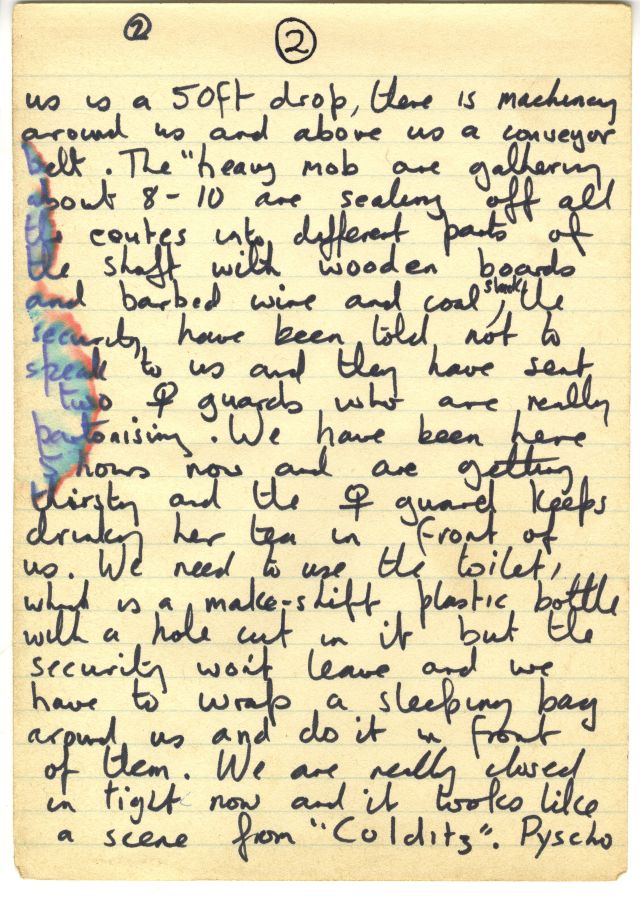 2
2
us is a 50ft drop, there is machinery
around us and above us a conveyor
belt. The "heavy mob are gathering
about 8-10 are sealing off all
the routes into different parts of
the shaft with wooden boards
and barbed wire and coal, the
security have been told not to
speak to us and they have sent
two ♀ guards who are really
patronising. We have been here
5 hours now and are getting
thirsty and the ♀ guard keeps
drinking her tea in front of
us. We need to use the toilet,
which is a make-shift plastic bottle
with a hole cut in it but the
security won't leave and we
have to wrap a sleeping bag
around us and do it in front
of them. We are really closed
in tight now and it looks like
a scene from "Colditz". Pyscho